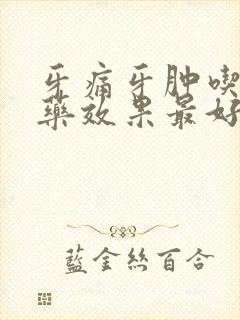 牙痛牙肿喫
藥效果最好
藍金絲百合